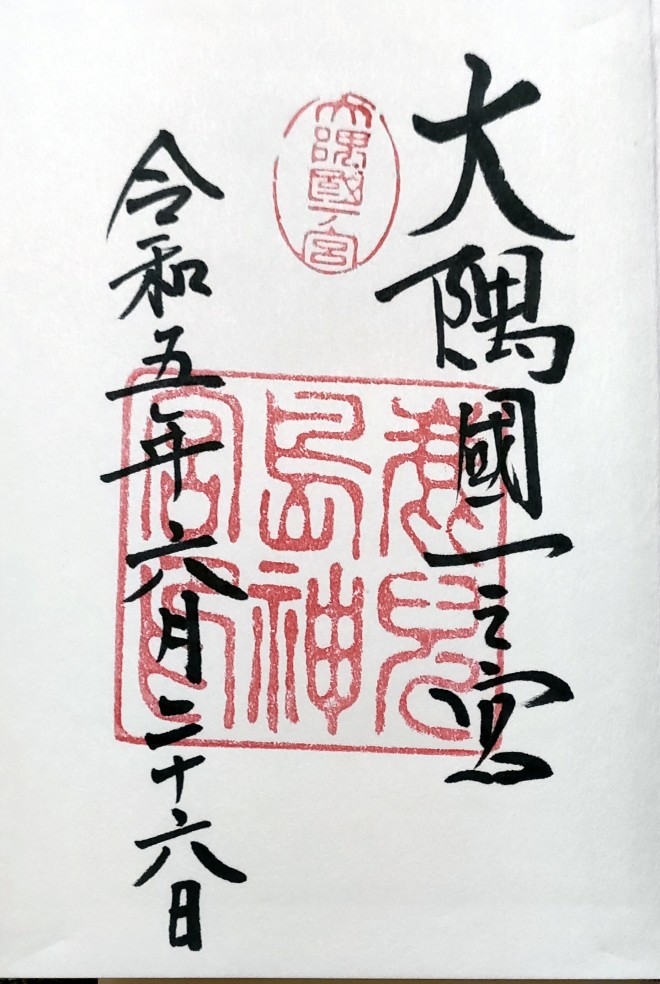 大隅國一之宮
大隅國一ノ宮
鹿兒
島神
宮印
令和五年六月二十六日